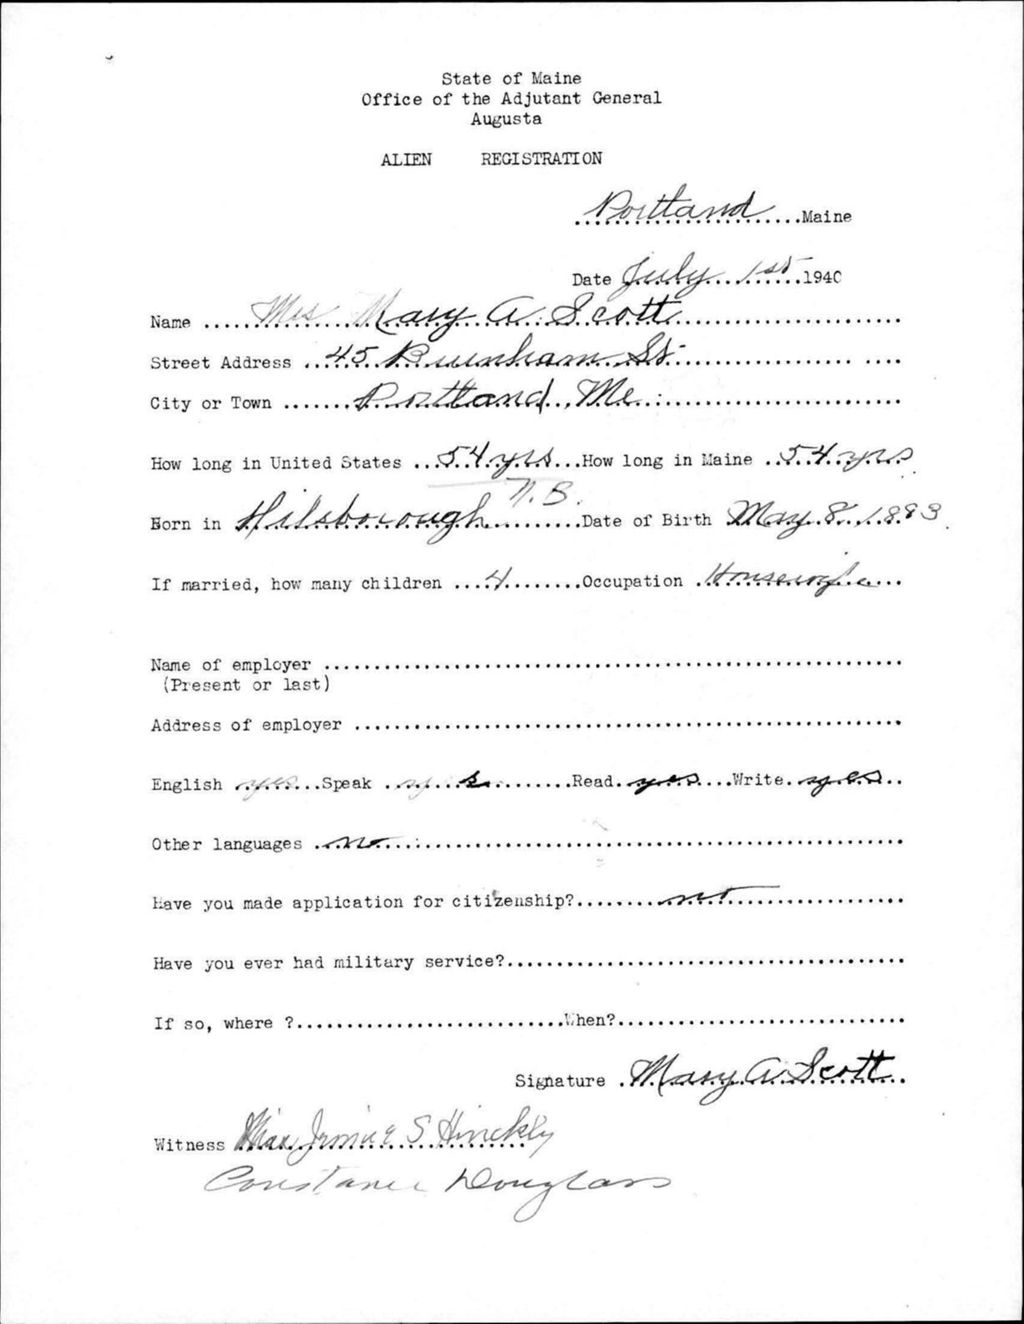 State of Maine
Office of the Adjutant General
Augusta
ALIEN REGISTRATION
Portland Maine
Date July 1st 1940
Name Mrs Mary A. Scott
Street Address 45 Burnham St.
City or Town Portland Me.
How long in United States 54 yrs How long in Maine 54 yrs
Born in Hilsborough N.B. Date of Birth May 8, 1883
If married, how many children 4 Occupation Housewife
Name of employer
(Present or last)
Address of employer
English yes Speak yes Read yes Write yes
Other languages no
Have you made application for citizenship? no
Have you ever had military service?
If so, where ? When?
Signature Mary A Scott
Witness Miss S. Hinckly
Constance Douglass